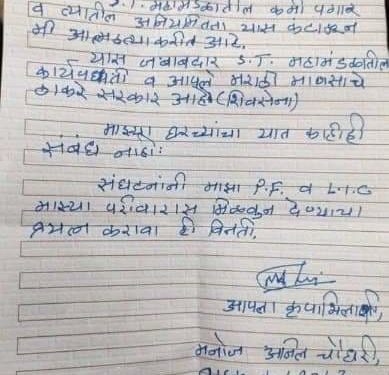 S.T. महामंडळातील कमी पगार
व त्यातील अनियमितता यास कंटाळून
मी आत्महत्या करीत आहे.
यास जबाबदार S.T. महामंडळातील
कार्यपध्दती व आपले मराठी माणसाचे
ठाकरे सरकार आहे (शिवसेना)
माझ्या घरच्यांचा यात काहीही
संबंध नाही:
संघटनांनी माझा P.F. व L.I.C
माझ्या परीवारास मिळवून देण्याचा
प्रयत्न करावा ही विनंती.
आपला कृपाभिलाषी,
मनोज अनिल चौधरी,